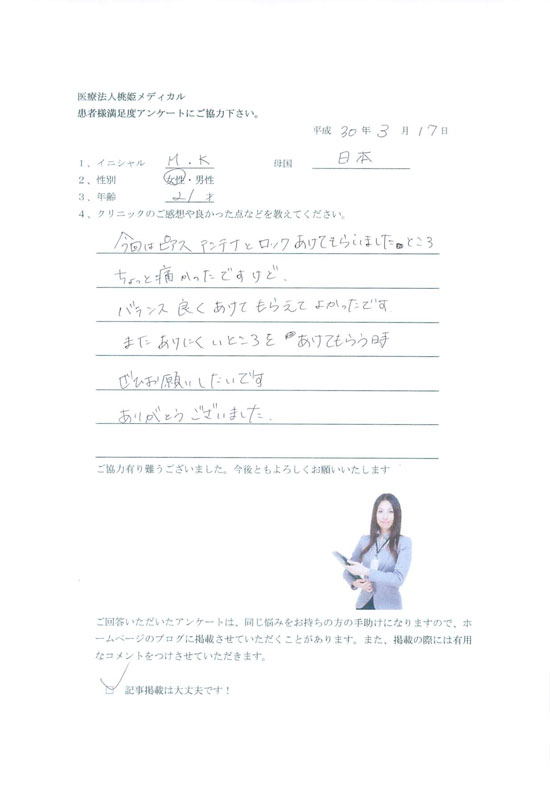 医療法人桃姫メディカル
患者様満足度アンケートにご協力下さい。
平成 30 年 3 月 17 日
1、イニシャル M.K 母国 日本
2、性別 女性・男性
3、年齢 21才
4、クリニックのご感想や良かった点などを教えてください。
今回はピアス アンテナとロックあけてもらいました。ところ
ちょっと痛かったですけど、
バランス良くあけてもらえてよかったです
またありにくいところをあけてもらう時
ぜひお願いしたいです
ありがとうございました。
ご協力有り難うございました。今後ともよろしくお願いいたします
ご回答いただいたアンケートは、同じ悩みをお持ちの方の手助けになりますので、ホ
ームページのブログに掲載させていただくことがあります。また、掲載の際には有用
なコメントをつけさせていただきます。
□ 記事掲載は大丈夫です！